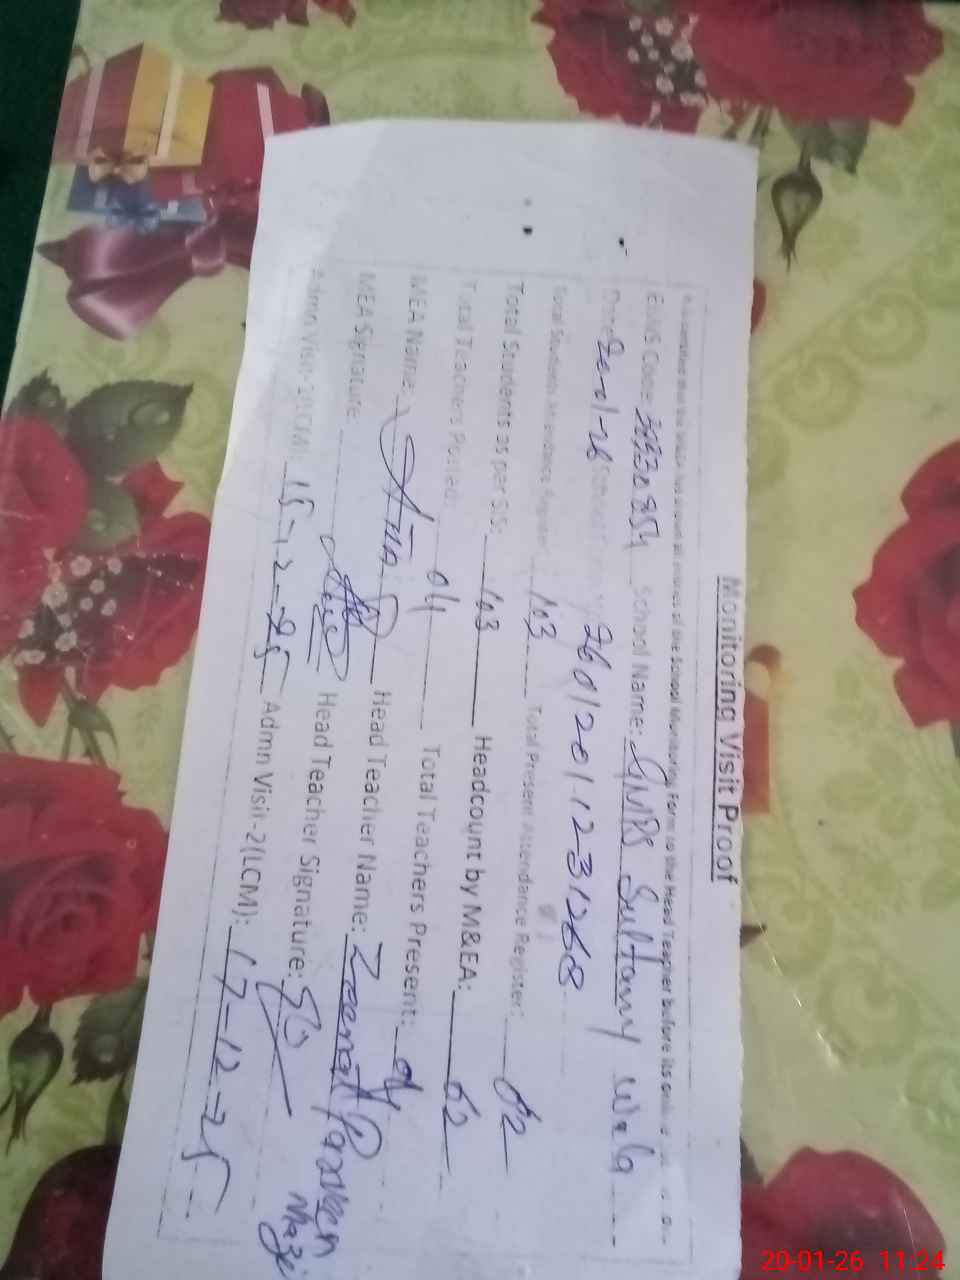 Monitoring Visit Proof
all entries of the School Monitoring Form to the Head Teacher before its online
EMIS Code: School Name: GMPS Sultany wala
Date: 20-01-26 2601201-12-31268
Total Students Attendance Register: 103 Total Present Attendance Register: 62
Total Students as per SIS: 103 Headcount by M&EA: 62
Total Teachers Posted: 04 Total Teachers Present: 04
MEA Name: Head Teacher Name: Zeenat Parveen
MEA Signature: Head Teacher Signature:
Admn Visit-1(LCM): 15-12-25 Admn Visit-2(LCM): 17-12-25
20-01-26 11:24